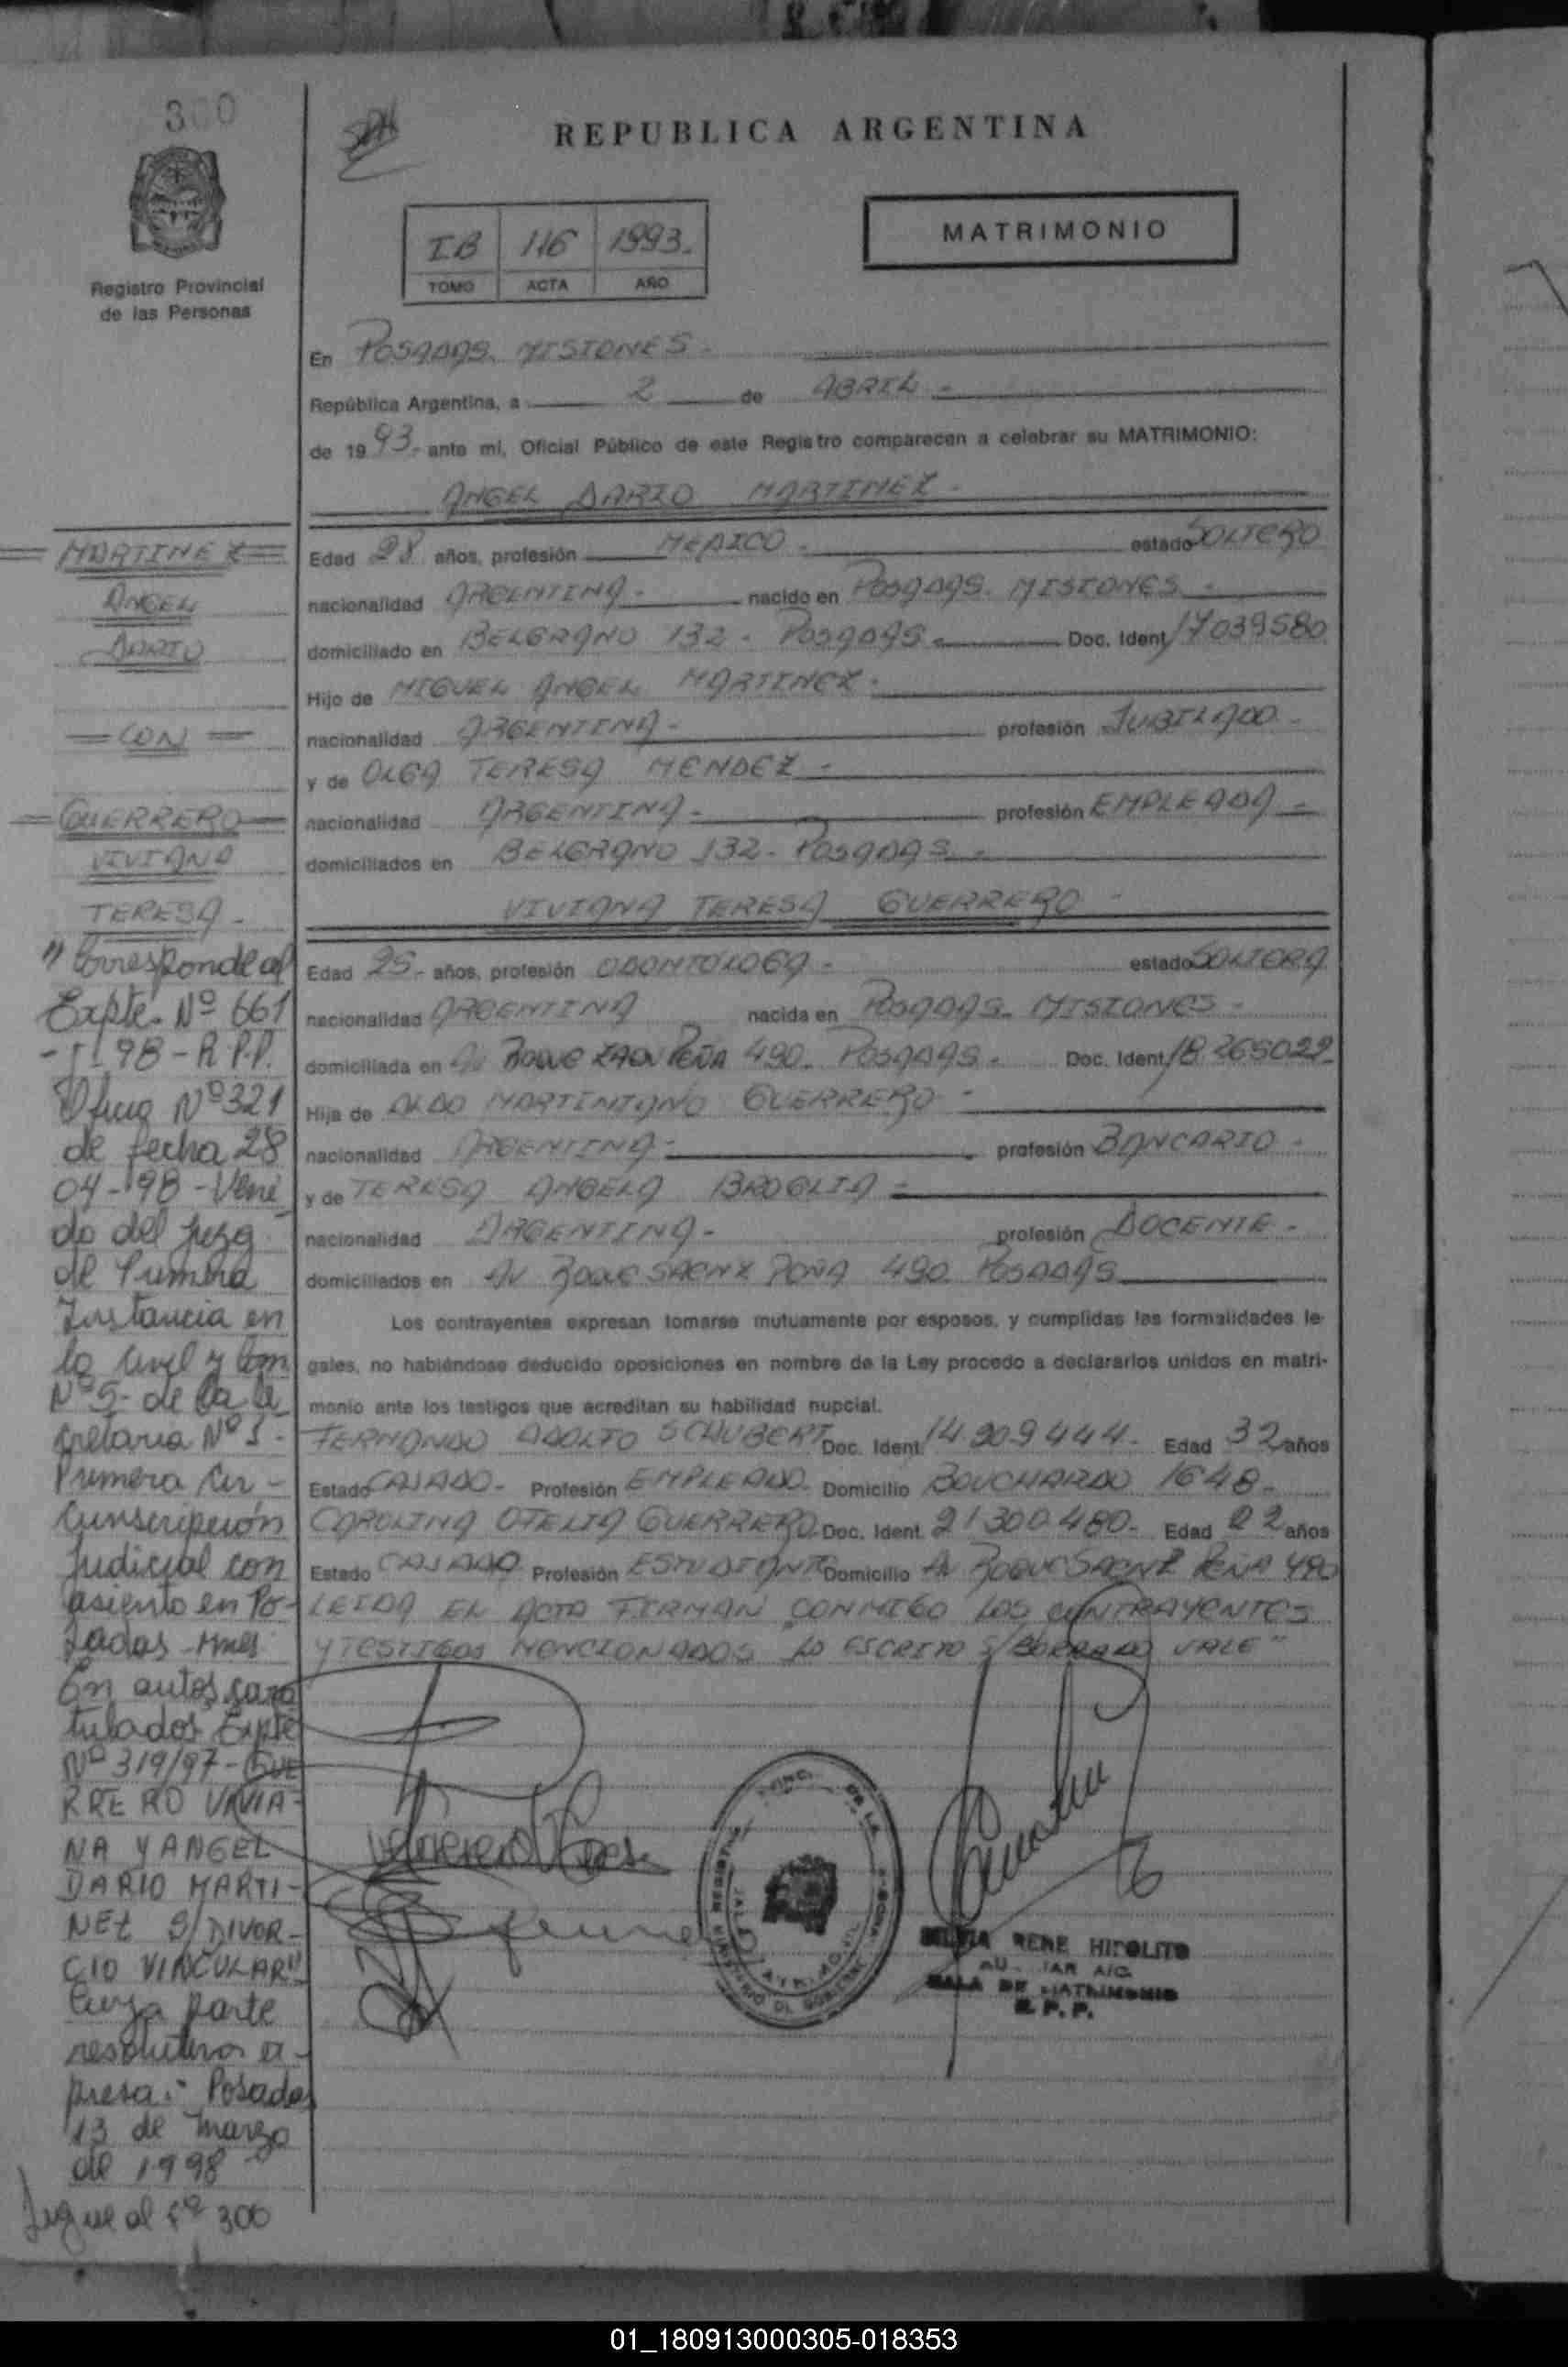 300
REPUBLICA ARGENTINA
Registro Provincial
de las Personas
I.B 116 1993.-
TOMO ACTA AÑO
MATRIMONIO
En POSADAS. MISIONES -
República Argentina, a 2 de ABRIL -
de 1993.- ante mi, Oficial Público de este Registro comparecen a celebrar su MATRIMONIO:
ANGEL DARIO MARTINEZ -
Edad 28 años, profesión MEDICO - estado SOLTERO
nacionalidad ARGENTINA - nacido en POSADAS. MISIONES -
domiciliado en BELGRANO 132 - POSADAS - Doc. Ident. 17039580
Hijo de MIGUEL ANGEL MARTINEZ -
nacionalidad ARGENTINA - profesión JUBILADO -
y de OLGA TERESA MENDEZ -
nacionalidad ARGENTINA - profesión EMPLEADA -
domiciliados en BELGRANO 132 - POSADAS -
VIVIANA TERESA GUERRERO -
Edad 25 - años, profesión ODONTOLOGA - estado SOLTERA
nacionalidad ARGENTINA nacida en POSADAS - MISIONES -
domiciliada en AV ROQUE PEÑA 490 - POSADAS - Doc. Ident. 18.265022-
Hija de ALDO MARTINIANO GUERRERO -
nacionalidad ARGENTINA - profesión BANCARIO -
y de TERESA ANGELA BROGLIA -
nacionalidad ARGENTINA - profesión DOCENTE -
domiciliados en AV ROQUE SAENZ PEÑA 490 POSADAS
Los contrayentes expresan tomarse mutuamente por esposos, y cumplidas las formalidades le-
gales, no habiéndose deducido oposiciones en nombre de la Ley procedo a declararlos unidos en matri-
monio ante los testigos que acreditan su habilidad nupcial.
FERNANDO ADOLFO SCHUBERT Doc. Ident. 14.209444 - Edad 32 años
Estado CASADO - Profesión EMPLEADO - Domicilio BOUCHARDO 1648 -
CAROLINA OFELIA GUERRERO Doc. Ident. 21300.480 - Edad 22 años
Estado CASADO Profesión ESTUDIANTE Domicilio AV ROQUE SAENZ PEÑA 490
LEIDA EL ACTA FIRMAN CONMIGO LOS CONTRAYENTES
Y TESTIGOS MENCIONADOS LO ESCRITO S/BORRADO VALE"
MARTINEZ
ANGEL
DARIO
= CON =
GUERRERO
VIVIANA
TERESA -
"Corresponde al
Expte. Nº 661
98 - R.P.P.
Oficio Nº 321
de fecha 28
04-98 - Veni
do del Juzg
de Primera
Instancia en
lo Civil y Com
Nº 5 - de la Se
cretaria Nº 1 -
Primera Cir -
cunscripción
Judicial con
asiento en Po-
sadas - Mnes
En autos cara
tulados Expte
Nº 319/97 - GUE
RRERO VIVIA-
NA Y ANGEL
DARIO MARTI-
NEZ S/DIVOR-
CIO VINCULAR"
Cuya parte
resolutiva ex-
presa: - Posadas
13 de marzo
de 1998
Sigue al Fº 300
SILVIA RENE HIPOLITO
SALA DE MATRIMONIO
R. P. P.
01_180913000305-018353